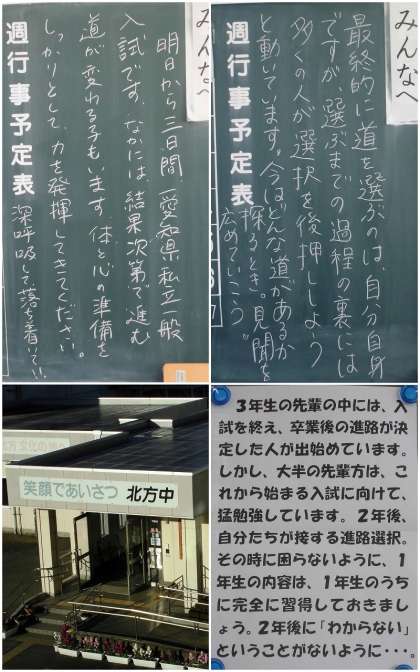 みんなへ
明日から三日間、愛知県私立一般
入試です。なかには、結果次第で進む
道が変わる子もいます。体と心の準備を
しっかりとして、力を発揮してきてください。
深呼吸して落ち着いてい
週行事予定表
みんなへ
最終的に道を選ぶのは、自分自身
ですが、選ぶまでの過程の裏には
多くの人が選択を後押ししよう
と動いています。今はどんな道があるか
探るとき。見聞を
広めていこう。
週行事予定表
笑顔であいさつ 北方中
3年生の先輩の中には、入
試を終え、卒業後の進路が
決定した人が出始めています。
しかし、大半の先輩方は、こ
れから始まる入試に向けて、
猛勉強しています。2年後、
自分たちが接する進路選択。
その時に困らないように、1
年生の内容は、1年生のうち
に完全に習得しておきまし
ょう。2年後に「わからない」
ということがないように・・・。